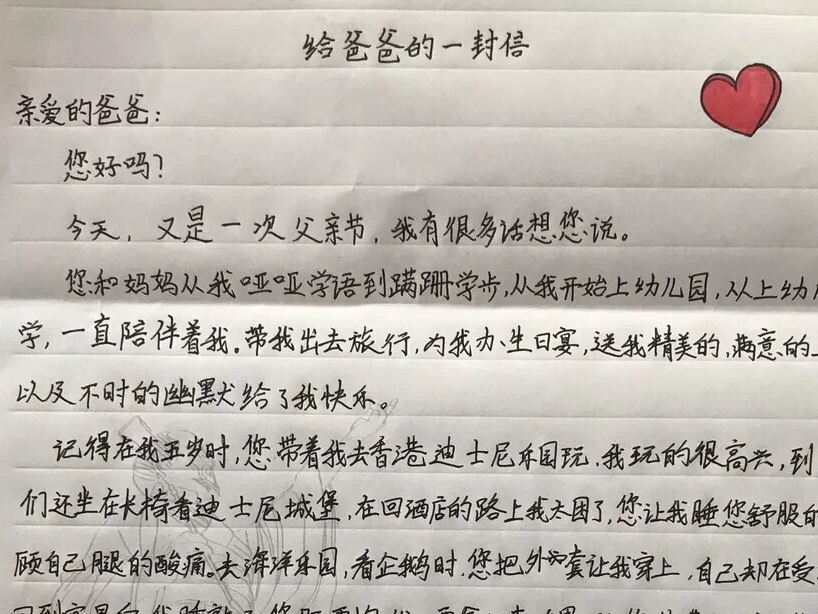 给爸爸的一封信
亲爱的爸爸：
您好吗？
今天，又是一次父亲节，我有很多话想您说。
您和妈妈从我哑哑学语到蹒跚学步，从我开始上幼儿园，从上幼
学，一直陪伴着我。带我出去旅行，为我办生日宴，送我精美的，满意的
以及不时的幽默给了我快乐。
记得在我五岁时，您带着我去香港迪士尼乐园玩，我玩的很高兴，到
们还坐在长椅看迪士尼城堡，在回酒店的路上我太困了，您让我睡您舒服的
顾自己腿的酸痛。去海洋乐园，看企鹅时，您把外套让我穿上，自己却在受